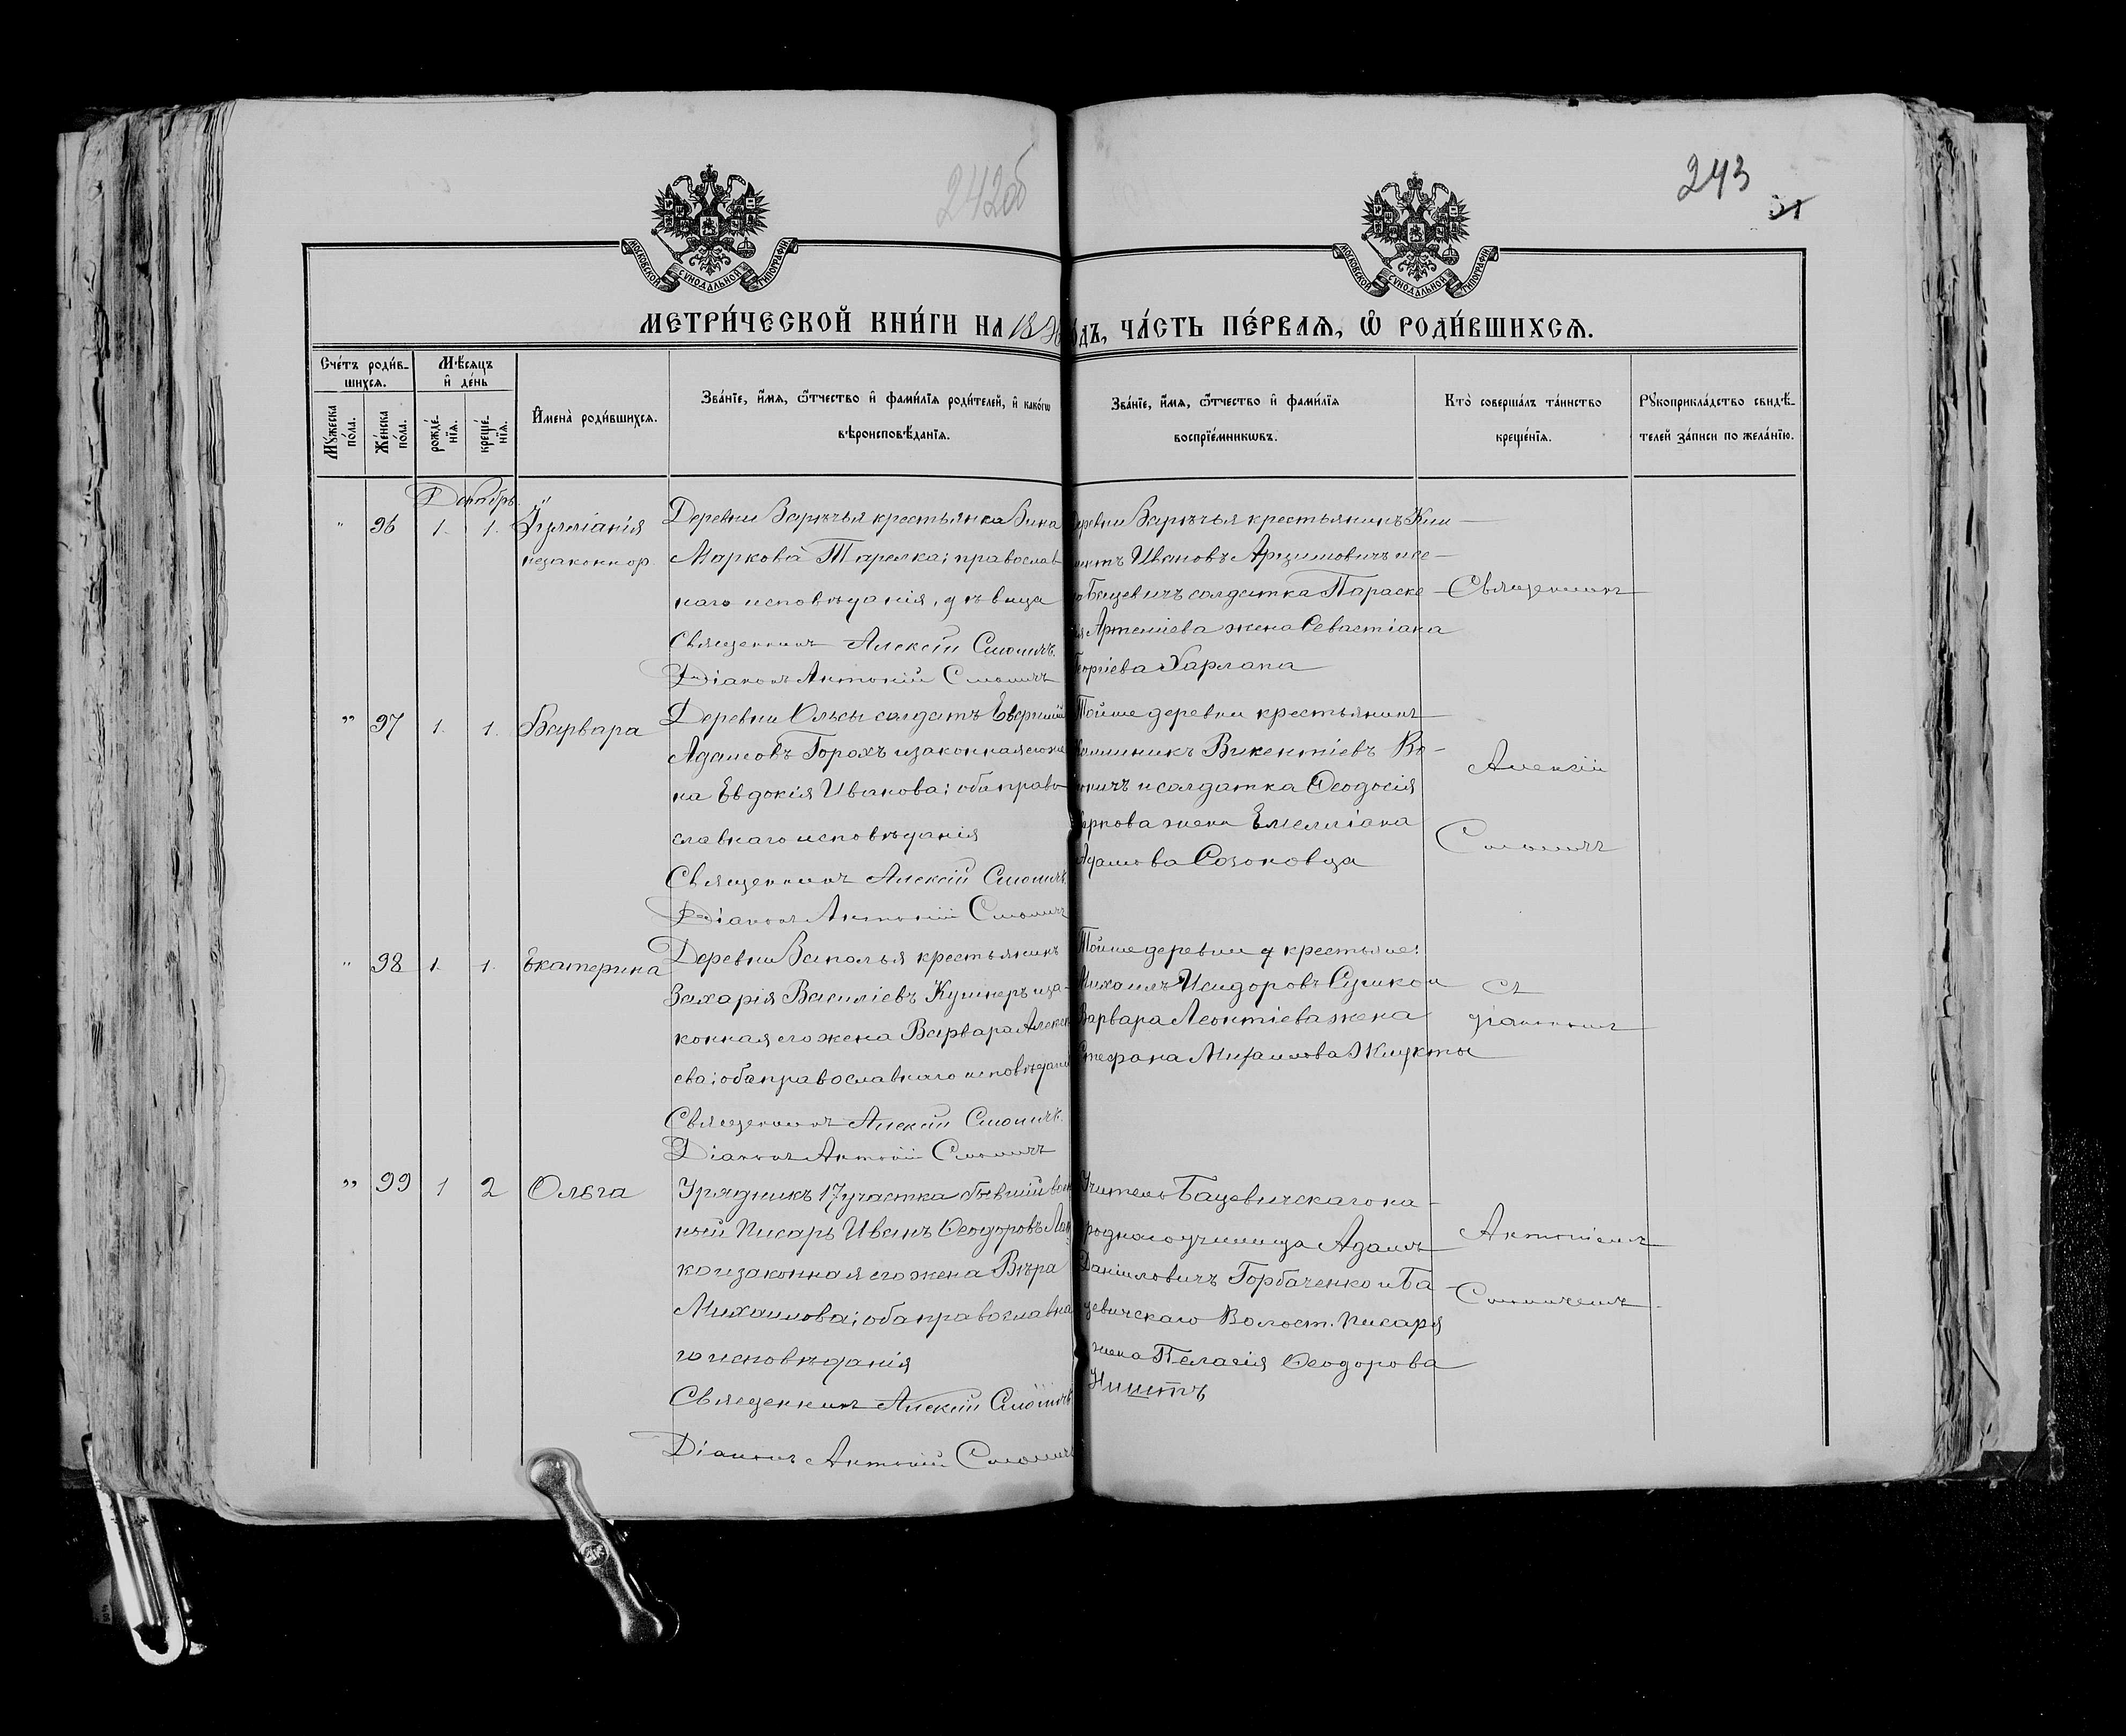 242об
243
МОСКОВСКОЙ СѴНОДАЛЬНОЙ ТИПОГРАФІИ
МОСКОВСКОЙ СѴНОДАЛЬНОЙ ТИПОГРАФІИ
МЕТРИ́ЧЕСКОЙ КНИ́ГИ НА 18 ДЪ, ЧА́СТЬ ПЕ́РВАЯ, Ѡ҆ РОДИ́ВШИХСЯ.
Сче́тъ роди́в-
шихся.
Мѣ́сяцъ
и҆ де́нь
Мꙋ́жеска по́ла.
Же́нска по́ла.
рожде́-
нїя.
креще́-
нїя.
И҆мена̀ роди́вшихся.
Зва́нїе, и҆́мя, ѻ҆́тчество и҆ фами́лїя роди́телей, и҆ како́гѡ
вѣроисповѣ́данїя.
Зва́нїе, и҆́мя, ѻ҆́тчество и҆ фами́лїя
воспрїе́мникѡвъ.
Кто̀ соверша́лъ та́инство
креще́нїя.
Рꙋкоприкла́дство свидѣ́-
телей за́писи по жела́нїю.
Декабрь
" 96 1. 1. Іуліанія
незаконнор.
Деревни Зарѣчья крестьянка Анна
Маркова Тарелка; православ
наго исповѣданія, дѣвица
Священникъ Алексій Смоличъ.
Діаконъ Антоній Смоличъ
Деревни Зарѣчья крестьянинъ Кли
ментъ Ивановъ Арцимовичъ и се-
ло Бацевичъ солдатка Параске
Артеміева жена Севастіана
Георгіева Харлапа
Священникъ
" 97 1. 1. Варвара
Деревни Ольсы солдатъ Евфимій
Адамовъ Горохъ и законная его же
на Евдокія Иванова; оба право
славнаго исповѣданія
Священникъ Алексій Смоличъ.
Діаконъ Антоній Смоличъ
Тойже деревни крестьянинъ
Викентіевъ
и солдатка Ѳеодосія
жена Емелліана
Адамова Созоновца
Алексій
Смоличъ
" 98 1. 1. Екатерина
Деревни Заполья крестьянинъ
Захарія Василіевъ Кушнеръ и за-
конная его жена Варвара Алексѣ
ева; оба православнаго исповѣданія
Священникъ Алексій Смоличъ.
Діаконъ Антоній Смоличъ
Тойже деревни крестьяне:
Михаилъ Исидоровъ Сушко и
Варвара Леонтіева жена
Стефана Михаилова Жмукты
съ
діакономъ
" 99 1 2 Ольга
Урядникъ 17 участка бывшій воен
ный писарь Иванъ Ѳеодоровъ
ко и законная его жена Вѣра
Михаилова; оба православна
го исповѣданія
Священникъ Алексій Смоличъ
Діаконъ Антоній Смоличъ
Учитель Бацевичскаго на-
роднаго училища Адамъ
Даніиловичъ Горбаченко и Ба-
цевичскаго Волост. писаря
жена Пелагія Ѳеодорова
Антоніемъ
Смоличемъ